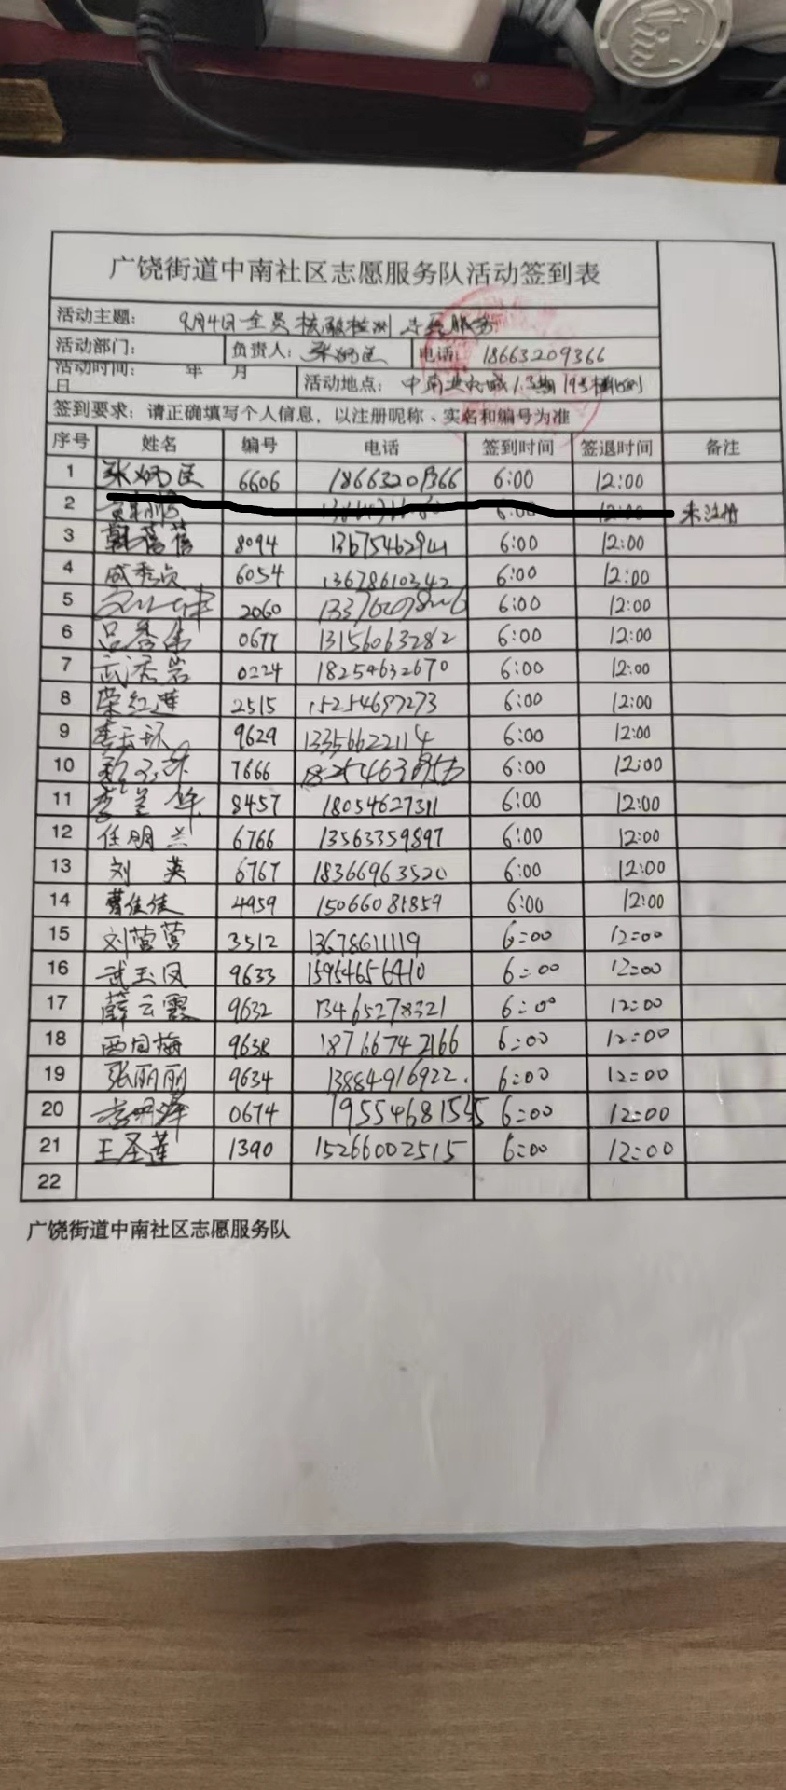 广饶街道中南社区志愿服务队活动签到表
活动主题： 9月4日全员核酸检测志愿服务
活动部门： 负责人： 张 电话： 18663209366
活动时间： 年 月 日 活动地点： 中南
签到要求：请正确填写个人信息，以注册昵称、实名和编号为准
序号 姓名 编号 电话 签到时间 签退时间 备注
1 张 6606 18663209366 6:00 12:00
2 6:00 12:00 未注册
3 韩蓓蓓 8094 6:00 12:00
4 6054 13678610342 6:00 12:00
5 2060 6:00 12:00
6 吕秀 0677 13156063282 6:00 12:00
7 武秀岩 0224 18254632670 6:00 12:00
8 荣红莲 2515 15254697273 6:00 12:00
9 李云环 9629 13356622114 6:00 12:00
10 7666 6:00 12:00
11 李兰华 8457 18054627311 6:00 12:00
12 任明兰 6766 13563359897 6:00 12:00
13 刘英 6767 18366963520 6:00 12:00
14 曹佳佳 4959 15066081859 6:00 12:00
15 刘营营 3512 13678611119 6:00 12:00
16 武玉凤 9633 15954656410 6:00 12:00
17 薛云霞 9632 13465278321 6:00 12:00
18 西同梅 9638 18766742166 6:00 12:00
19 张丽丽 9634 13884916922. 6:00 12:00
20 0674 6:00 12:00
21 王圣莲 1390 15266002515 6:00 12:00
22
广饶街道中南社区志愿服务队